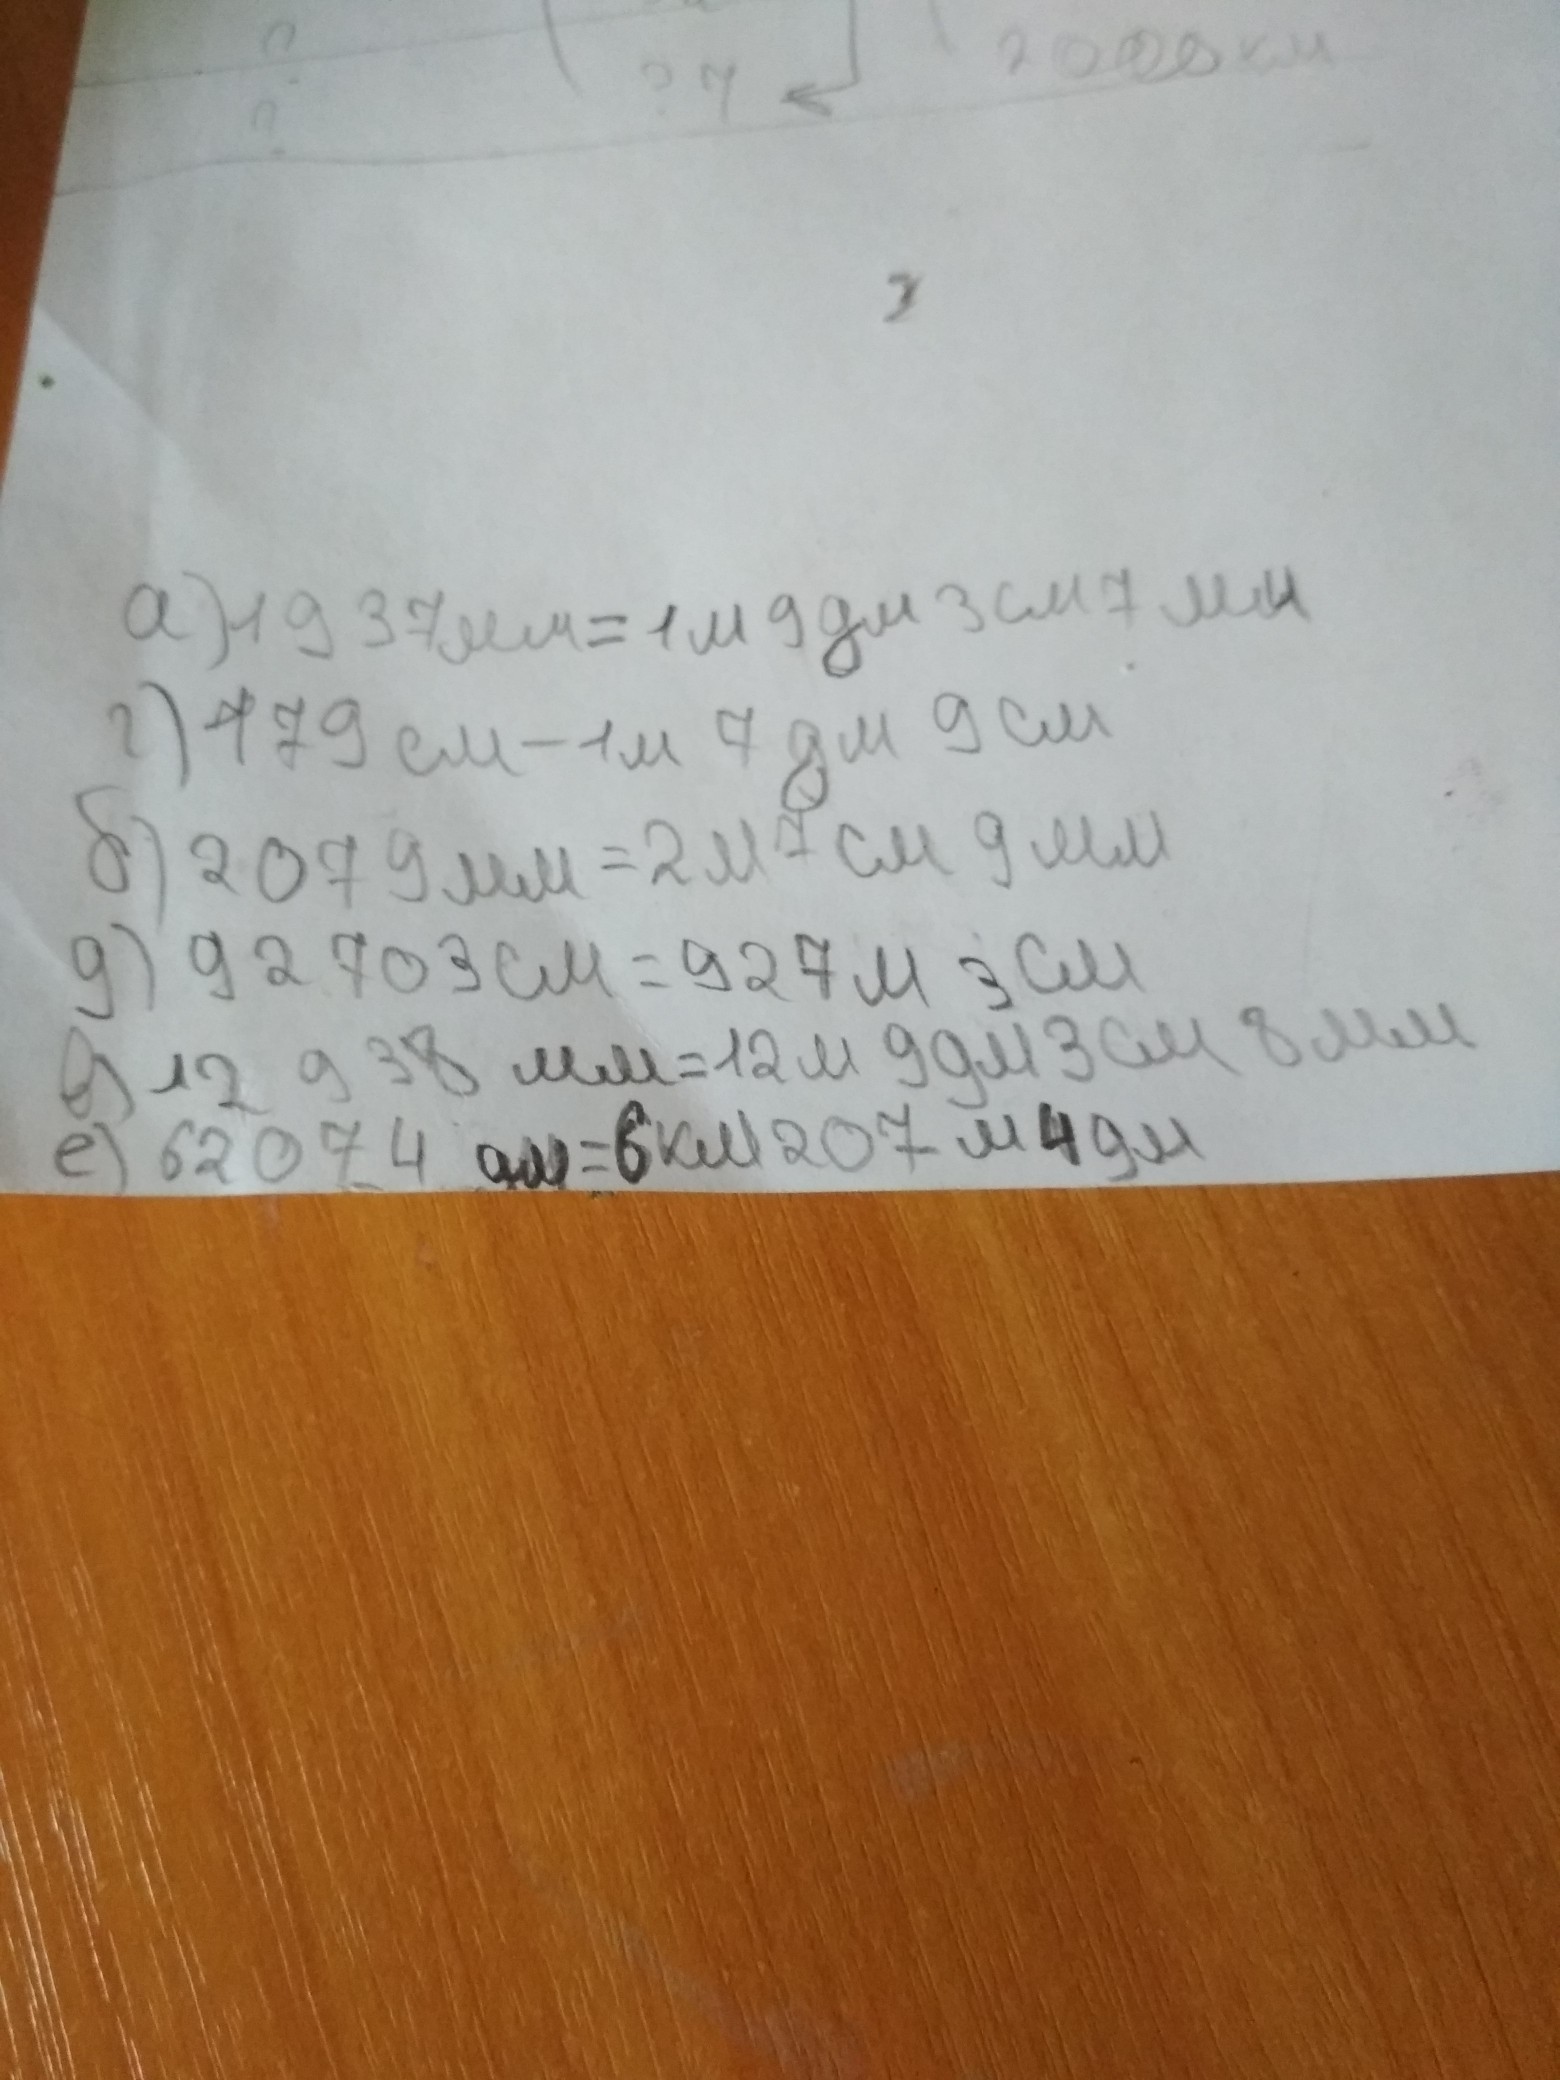 ?
? 7
2000 км
?
а) 1937мм=1м 9дм 3см 7мм
г) 179см-1м 7дм 9см
б) 2079мм=2м 7см 9мм
д) 92703см=927м 3см
в) 12 938 мм=12м 9дм 3см 8мм
е) 62074 дм=6км 207м 4дм